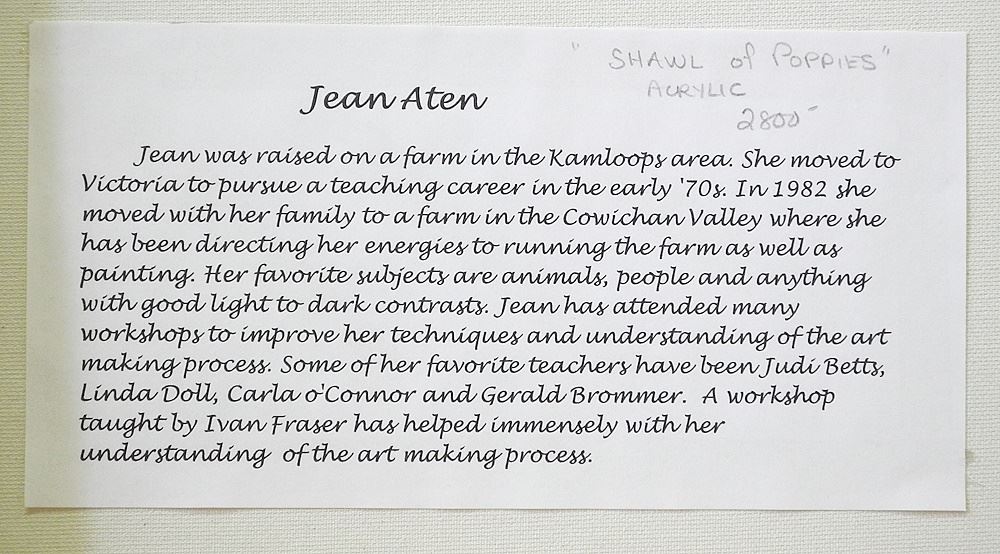 "SHAWL of POPPIES"
ACRYLIC
2800-
Jean Aten
Jean was raised on a farm in the Kamloops area. She moved to
Victoria to pursue a teaching career in the early '70s. In 1982 she
moved with her family to a farm in the Cowichan Valley where she
has been directing her energies to running the farm as well as
painting. Her favorite subjects are animals, people and anything
with good light to dark contrasts. Jean has attended many
workshops to improve her techniques and understanding of the art
making process. Some of her favorite teachers have been Judi Betts,
Linda Doll, Carla o'Connor and Gerald Brommer.  A workshop
taught by Ivan Fraser has helped immensely with her
understanding  of the art making process.